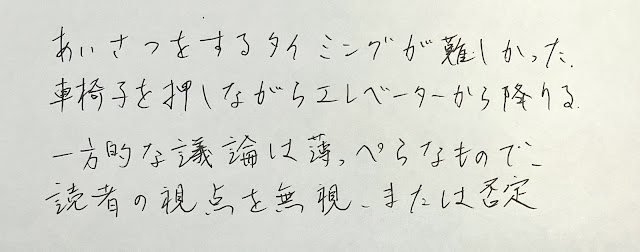 あいさつをするタイミングが難しかった.
車椅子を押しながらエレベーターから降りる.
一方的な議論は薄っぺらなもので、
読者の視点を無視、または否定